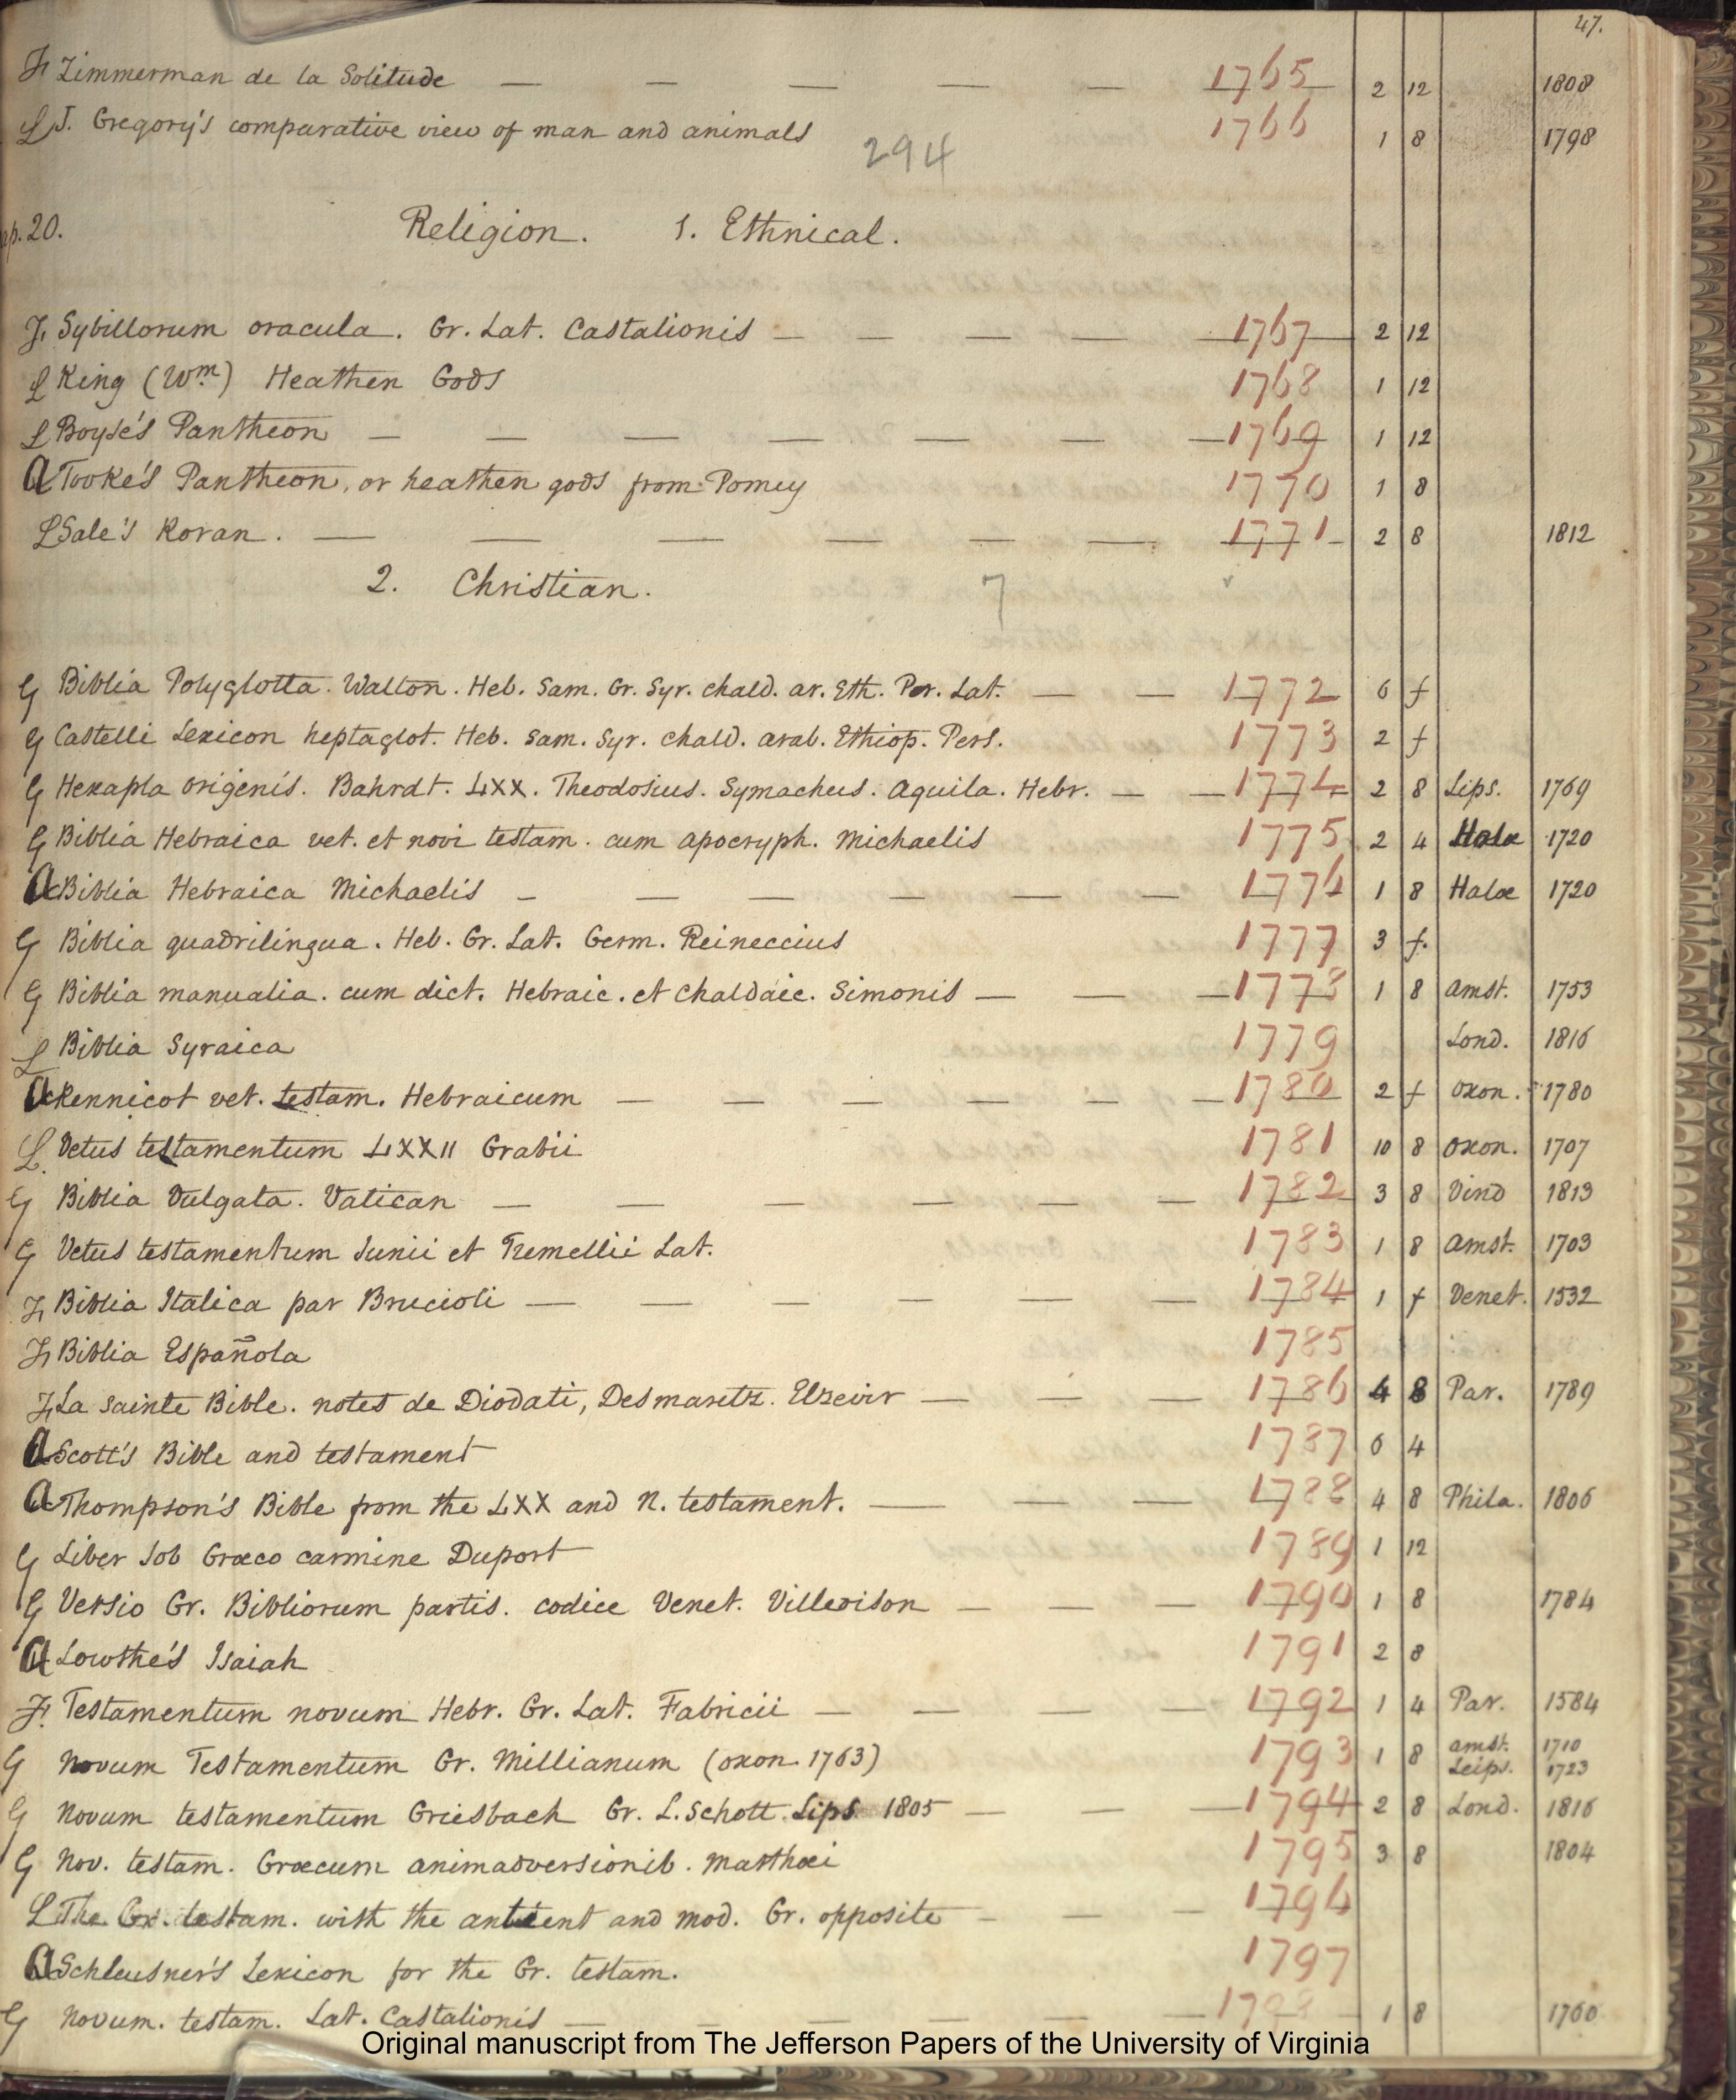 47.
F Zimmerman de la Solitude — — — — — 1765 2 12 1808
L J. Gregory's comparative view of man and animals 1766 1 8 1798
294
ap. 20. Religion. 1. Ethnical.
F Sybillorum oracula. Gr. Lat. Castalionis — — — — 1767 2 12
L King (Wm) Heathen Gods 1768 1 12
L Boyse's Pantheon — — — — — — — 1769 1 12
A Tooke's Pantheon, or heathen gods from Pomey 1770 1 8
L Sale's Koran. — — — — — — 1771 2 8 1812
2. Christian. 7
G Biblia Polyglotta. Walton. Heb. Sam. Gr. Syr. Chald. ar. Eth. Per. Lat. — — 1772 6 f
G Castelli Lexicon heptaglot. Heb. Sam. Syr. Chald. arab. Ethiop. Pers. 1773 2 f
G Hexapla origenis. Bahrdt. LXX. Theodosius. Symachus. Aquila. Hebr. — — 1774 2 8 Lips. 1769
G Biblia Hebraica vet. et novi testam. cum apocryph. Michaelis 1775 2 4 Halæ 1720
A Biblia Hebraica Michaelis — — — — — — 1776 1 8 Halæ 1720
G Biblia quadrilingua. Heb. Gr. Lat. Germ. Reineccius 1777 3 f.
G Biblia manualia. cum dict. Hebraic. et Chaldaic. Simonis — — — 1778 1 8 Amst. 1753
L Biblia Syraica 1779 Lond. 1816
A Kennicot vet. testam. Hebraicum — — — — — — 1780 2 f Oxon. 1780
L. Vetus testamentum LXXII Grabii 1781 10 8 Oxon. 1707
G Biblia Vulgata. Vatican — — — — — — 1782 3 8 Vind 1813
G Vetus testamentum Junii et Tremellii Lat. 1783 1 8 Amst. 1703
F Biblia Italica par Brucioli — — — — — — 1784 1 f Venet. 1532
F Biblia Española 1785
F La sainte Bible. notes de Diodati, Desmaretz. Elzevir — — — 1786 4 8 Par. 1789
A Scott's Bible and testament 1787 6 4
A Thompson's Bible from the LXX and N. testament. — — — 1788 4 8 Phila. 1806
G Liber Job Græco carmine Duport 1789 1 12
G Versio Gr. Bibliorum partis. codice Venet. Villoison — — — 1790 1 8 1784
A Lowthe's Isaiah 1791 2 8
F. Testamentum novum Hebr. Gr. Lat. Fabricii — — — — 1792 1 4 Par. 1584
G Novum Testamentum Gr. Millianum (oxon. 1763) 1793 1 8 Amst. 1710
Leips. 1723
G Novum testamentum Griesbach Gr. L. Schott. Lips 1805 — — — 1794 2 8 Lond. 1816
G Nov. testam. Græcum animadversionib. Matthæi 1795 3 8 1804
L The Gr. testam. with the antient and mod. Gr. opposite — — — 1796
A Schleusner's Lexicon for the Gr. testam. 1797
G Novum. testam. Lat. Castalionis — — — — — — 1798 1 8 1760
Original manuscript from The Jefferson Papers of the University of Virginia